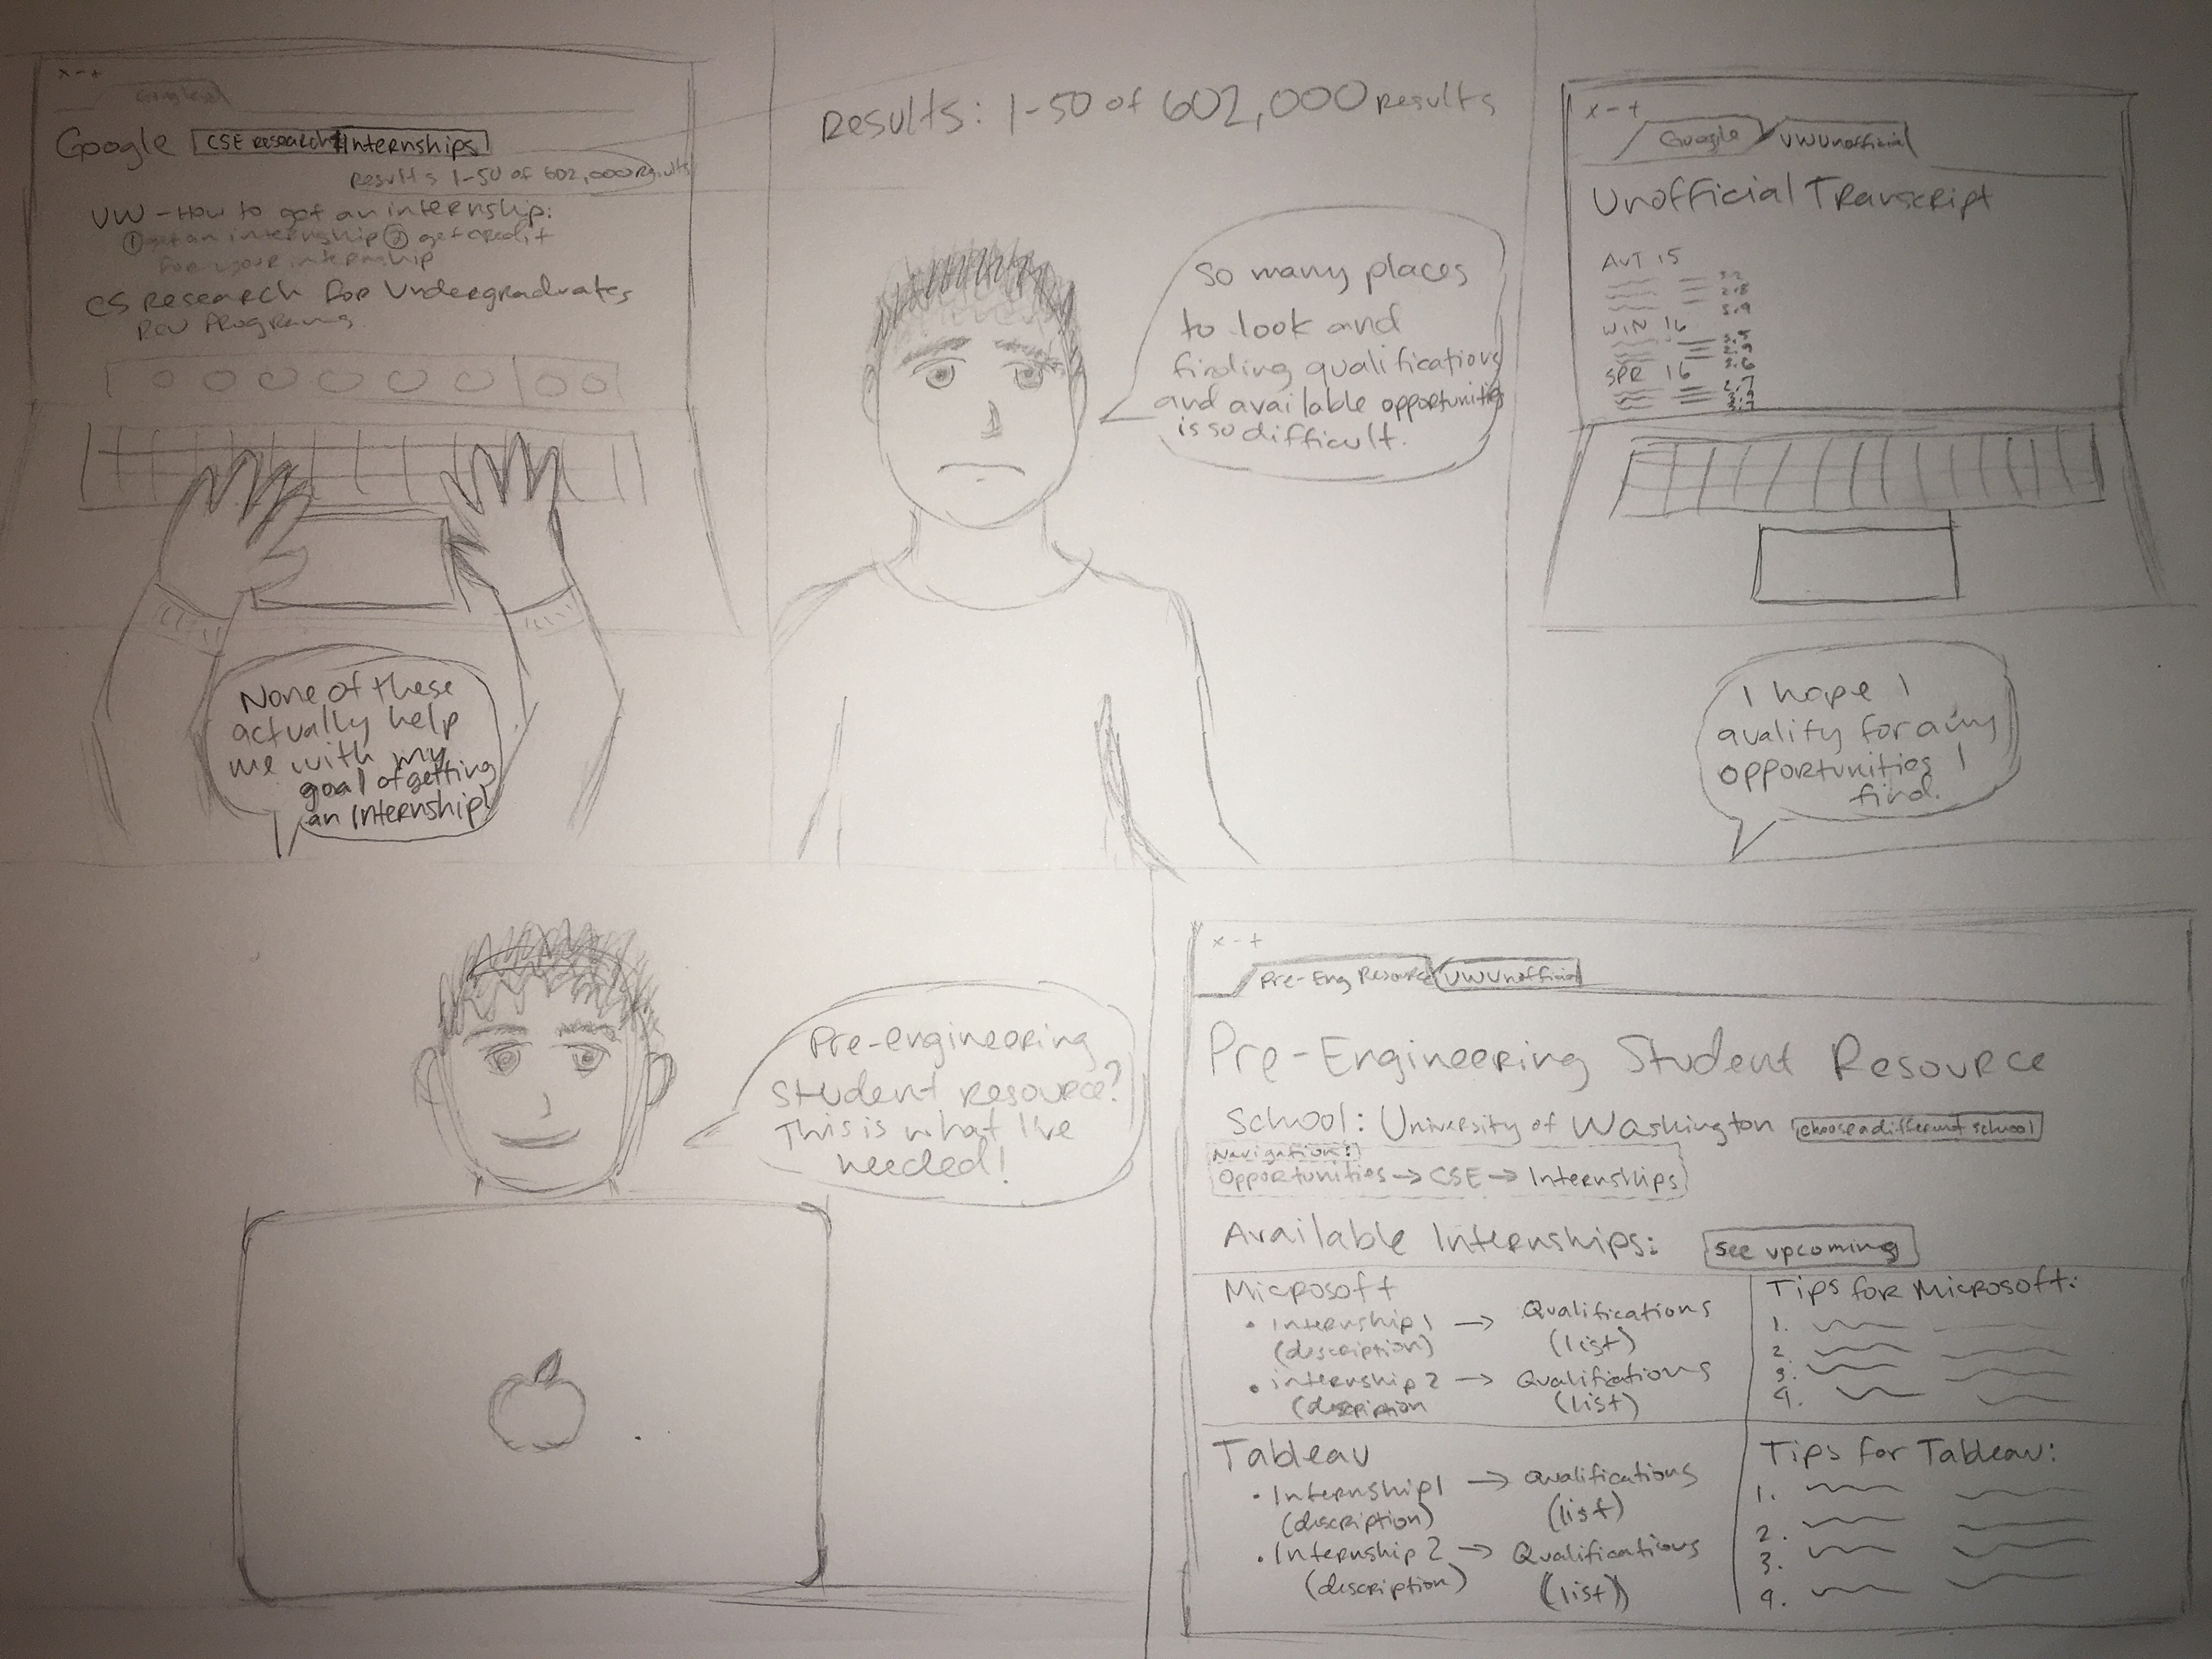 x - +
Google
Google CSE research Internships
Results 1-50 of 602,000 Results
UW - How to get an internship:
① get an internship ② get credit
for your internship
CS Research for Undergraduates
REU Programs
None of these
actually help
me with my
goal of getting
an Internship!
Results: 1-50 of 602,000 results
So many places
to look and
finding qualifications
and available opportunities
is so difficult.
x - +
Google UWUnofficial
Unofficial Transcript
AUT 15
WIN 16
SPR 16
I hope I
qualify for any
opportunities I
find.
Pre-engineering
student resource?
This is what I've
needed!
x - +
Pre-Eng Resource UWUnofficial
Pre-Engineering Student Resource
School: University of Washington choose a different school
Navigation:
Opportunities → CSE → Internships
Available Internships: see upcoming
Microsoft
• Internship 1 → Qualifications
(description) (list)
• internship 2 → Qualifications
(description (list)
Tips for Microsoft:
1.
2.
3.
4.
Tableau
• Internship 1 → Qualifications
(description) (list)
• Internship 2 → Qualifications
(description) (list)
Tips for Tableau:
1.
2.
3.
4.